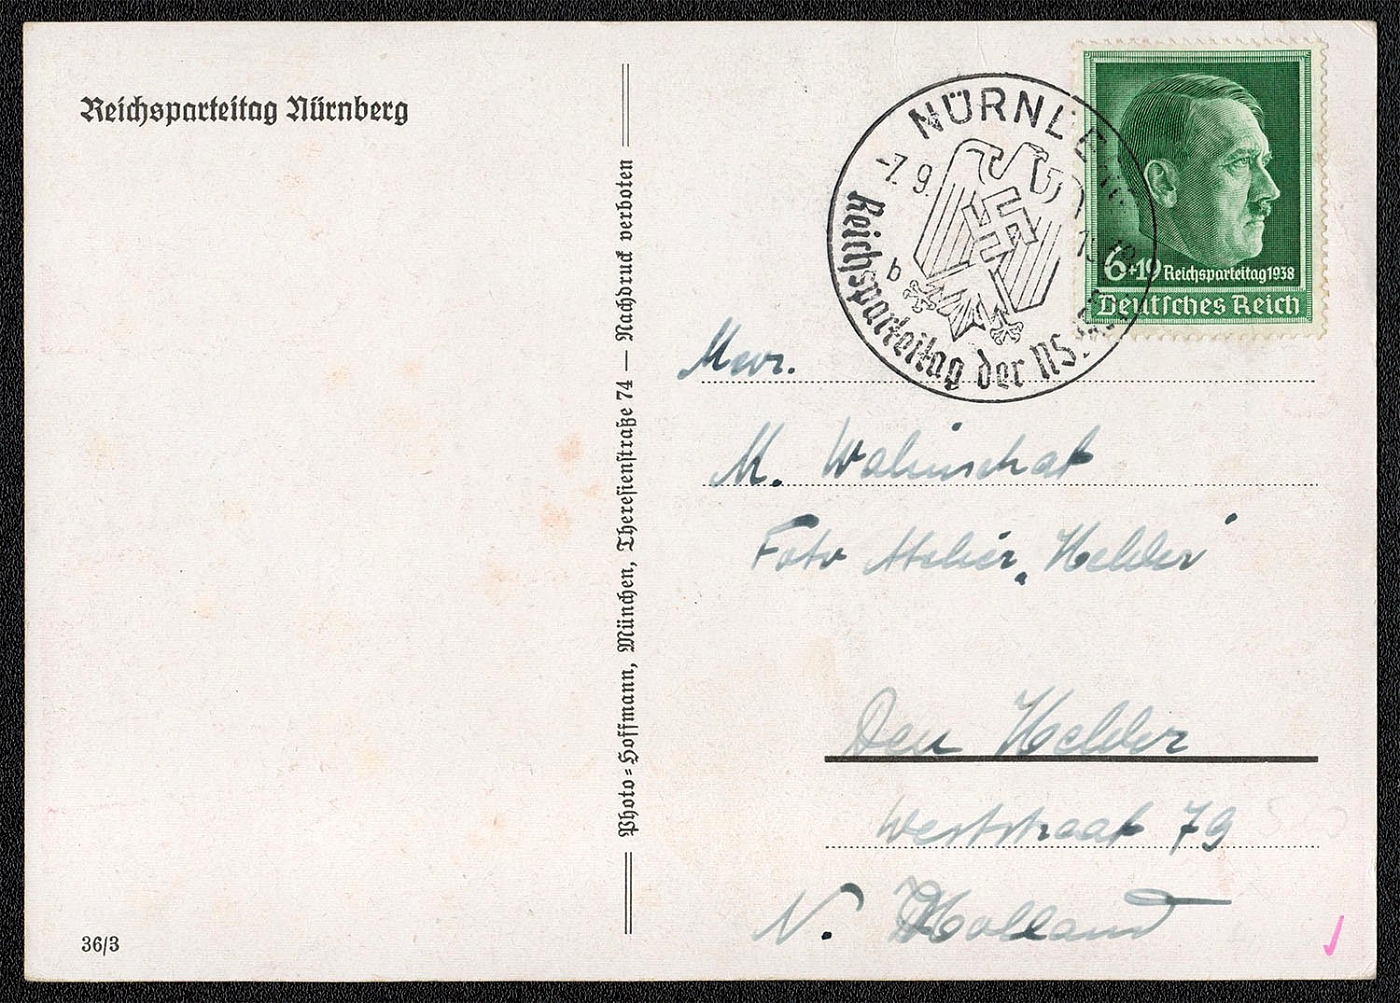 Reichsparteitag Nürnberg
Photo-Hoffmann, München, Theresienstraße 74 — Nachdruck verboten
36/3
NÜRNBE
-7. 9.
b
Reichsparteitag der NS.
6+19 Reichsparteitag 1938
Deutsches Reich
M.
Foto Atelier „Helder"
Den Helder
Weststraat 79
N. Holland